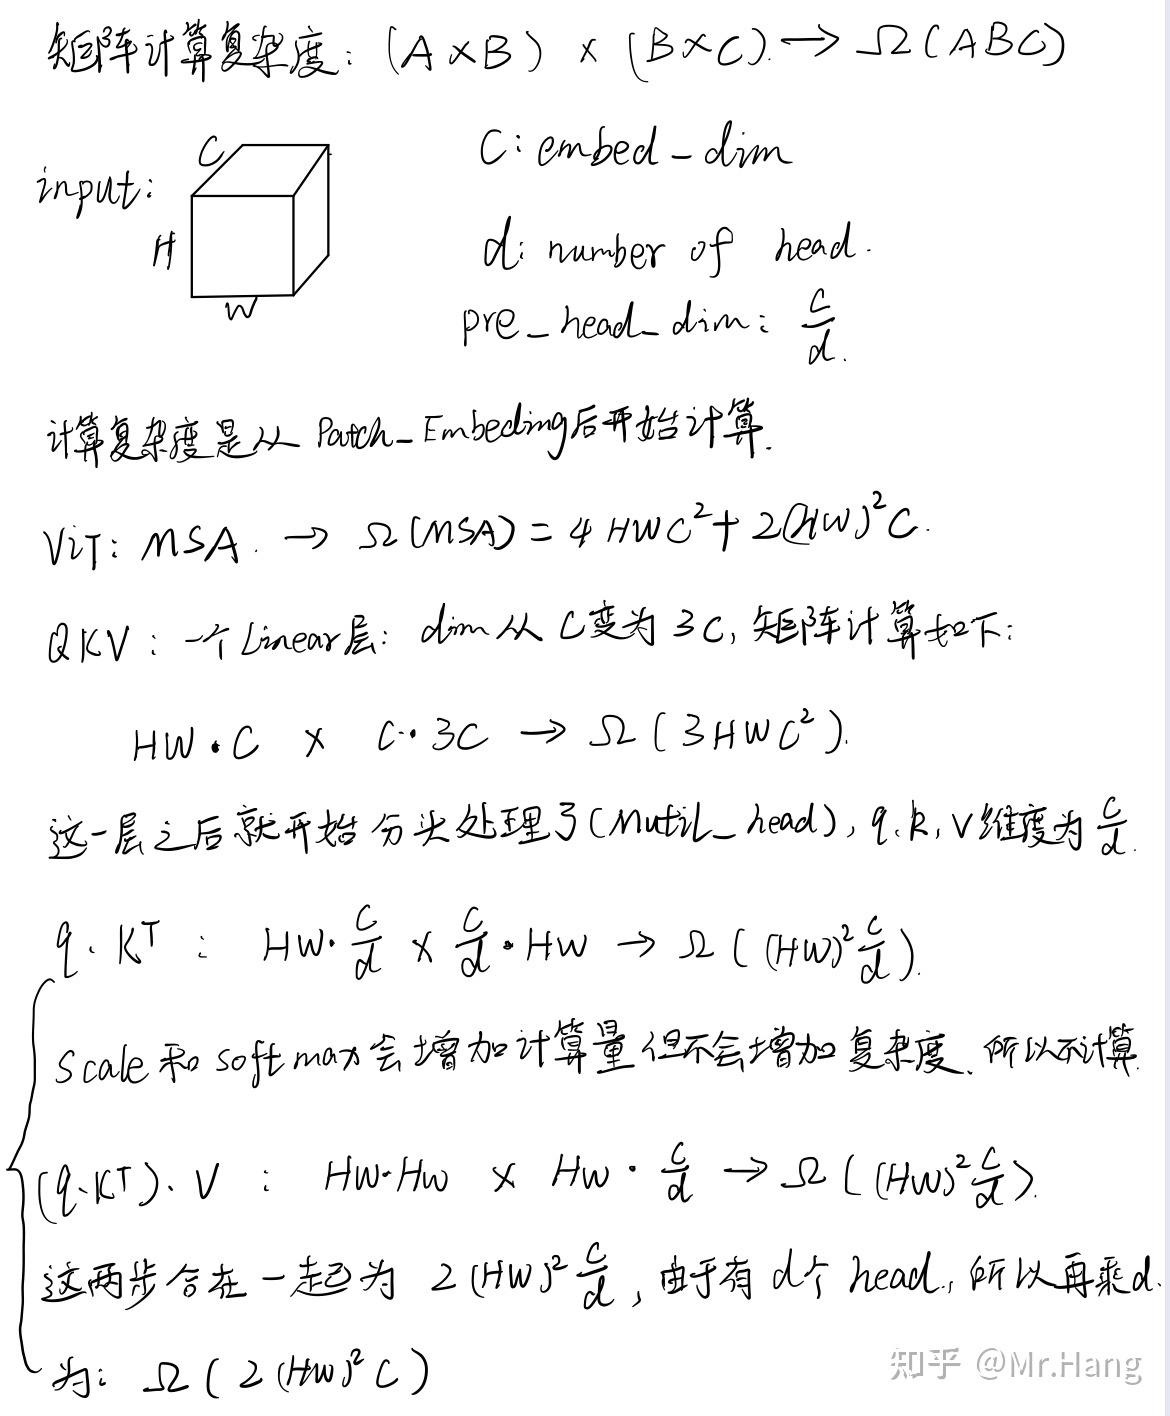 矩阵计算复杂度: (A×B) × (B×C). → Ω(ABC)
C
input:
H
W
C: embed_dim
d: number of head.
pre_head_dim: C/d.
计算复杂度是从 Patch_Embeding后开始计算.
ViT: MSA. → Ω(MSA) = 4HWC²+2(HW)²C.
QKV: 一个Linear层: dim从C变为3C, 矩阵计算如下:
HW·C × C·3C → Ω(3HWC²).
这一层之后就开始分头处理了(Mutil_head), q.k,v维度为C/d.
q.KT: HW·C/d × C/d·HW → Ω((HW)²C/d).
Scale和softmax会增加计算量但不会增加复杂度、所以不计算
(q.KT).V: HW·HW × HW·C/d → Ω((HW)²C/d).
这两步合在一起为 2(HW)²C/d, 由于有d个head, 所以再乘d.
为: Ω(2(HW)²C)
知乎 @Mr.Hang